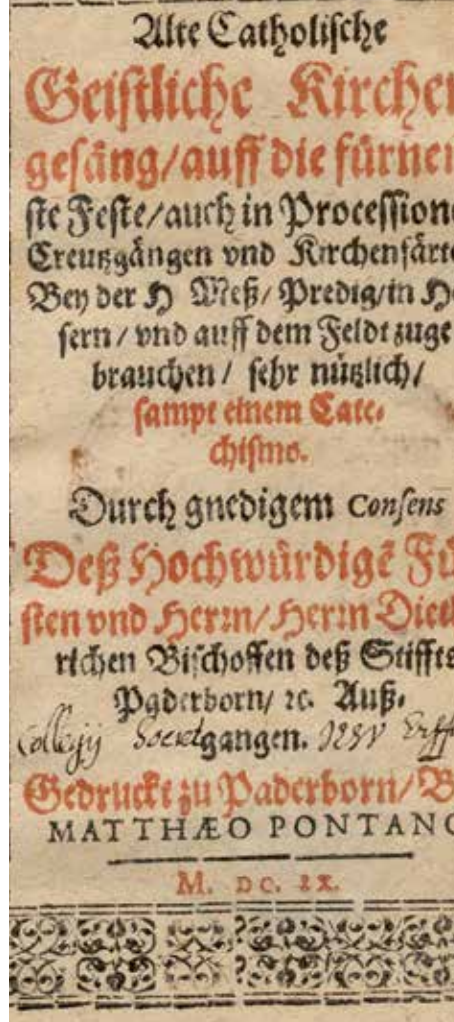 Alte Catholiſche
Geiſtliche Kirchen
geſäng/auff die fürnem
ſte Feſte/auch in Proceſſion
Creutzgängen vnd Kirchenfärte
Bey der H Meß/Predig/in He
ſern/vnd auff dem Feldt zuge
brauchen/ſehr nützlich/
ſampt einem Cate⸗
chiſmo.
Durch gnedigem Conſens
Deß Hochwürdigē Fü
ſten vnd Herrn/Herrn Diet
richen Biſchoffen deß Stiffts
Paderborn/ ꝛc. Auß⸗
Collegij Societ gangen. IESV Erff
Gedruckt zu Paderborn/B
MATTHÆO PONTANO
M. DC. IX.